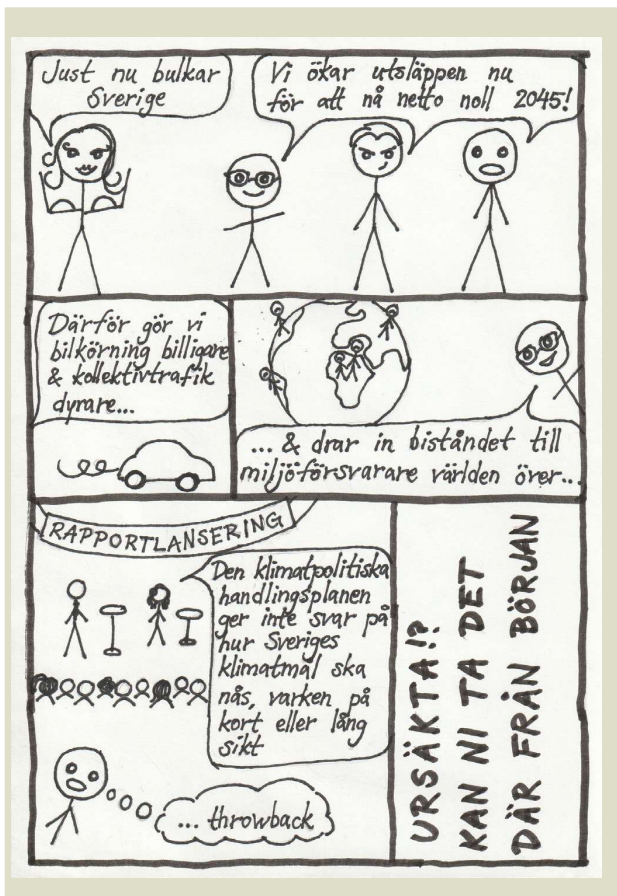 Just nu bulkar
Sverige
Vi ökar utsläppen nu
för att nå netto noll 2045!
Därför gör vi
bilkörning billigare
& kollektivtrafik
dyrare...
... & drar in biståndet till
miljöförsvarare världen över...
RAPPORTLANSERING
Den klimatpolitiska
handlingsplanen
ger inte svar på
hur Sveriges
klimatmål ska
nås, varken på
kort eller lång
sikt
... throwback
URSÄKTA!?
KAN NI TA DET
DÄR FRÅN BÖRJAN